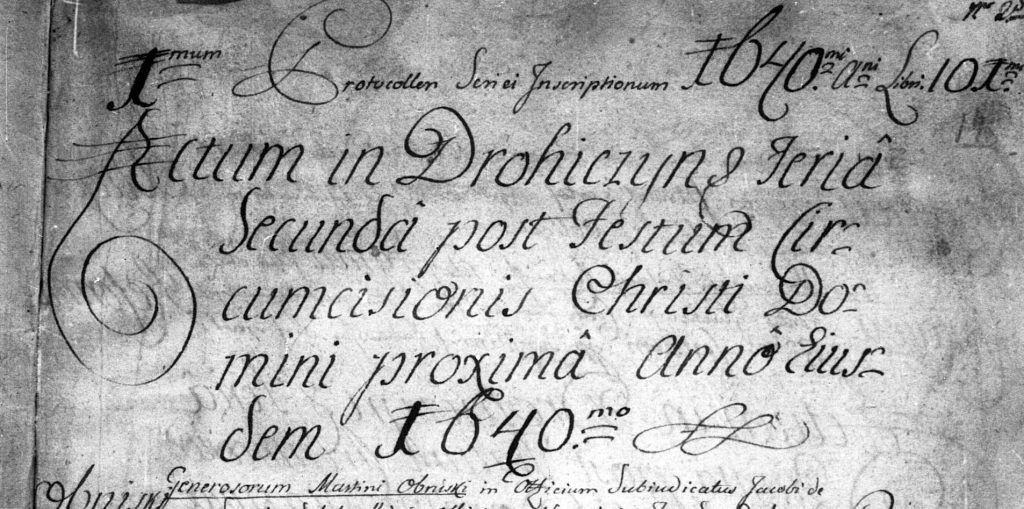 Nro 2do
1mum Protocollon Seriei Inscriptionum 1640.mi Ani Libri: 101.mi
Actum in Drohiczyn & Feriâ
Secundâ post Festum Cir-
cumcisionis Christi Do-
mini proximâ Annô Eius-
dem 1640.mo
Obniski Generosorum Martini Obniski in Officium Subiudicatus Jacobi de